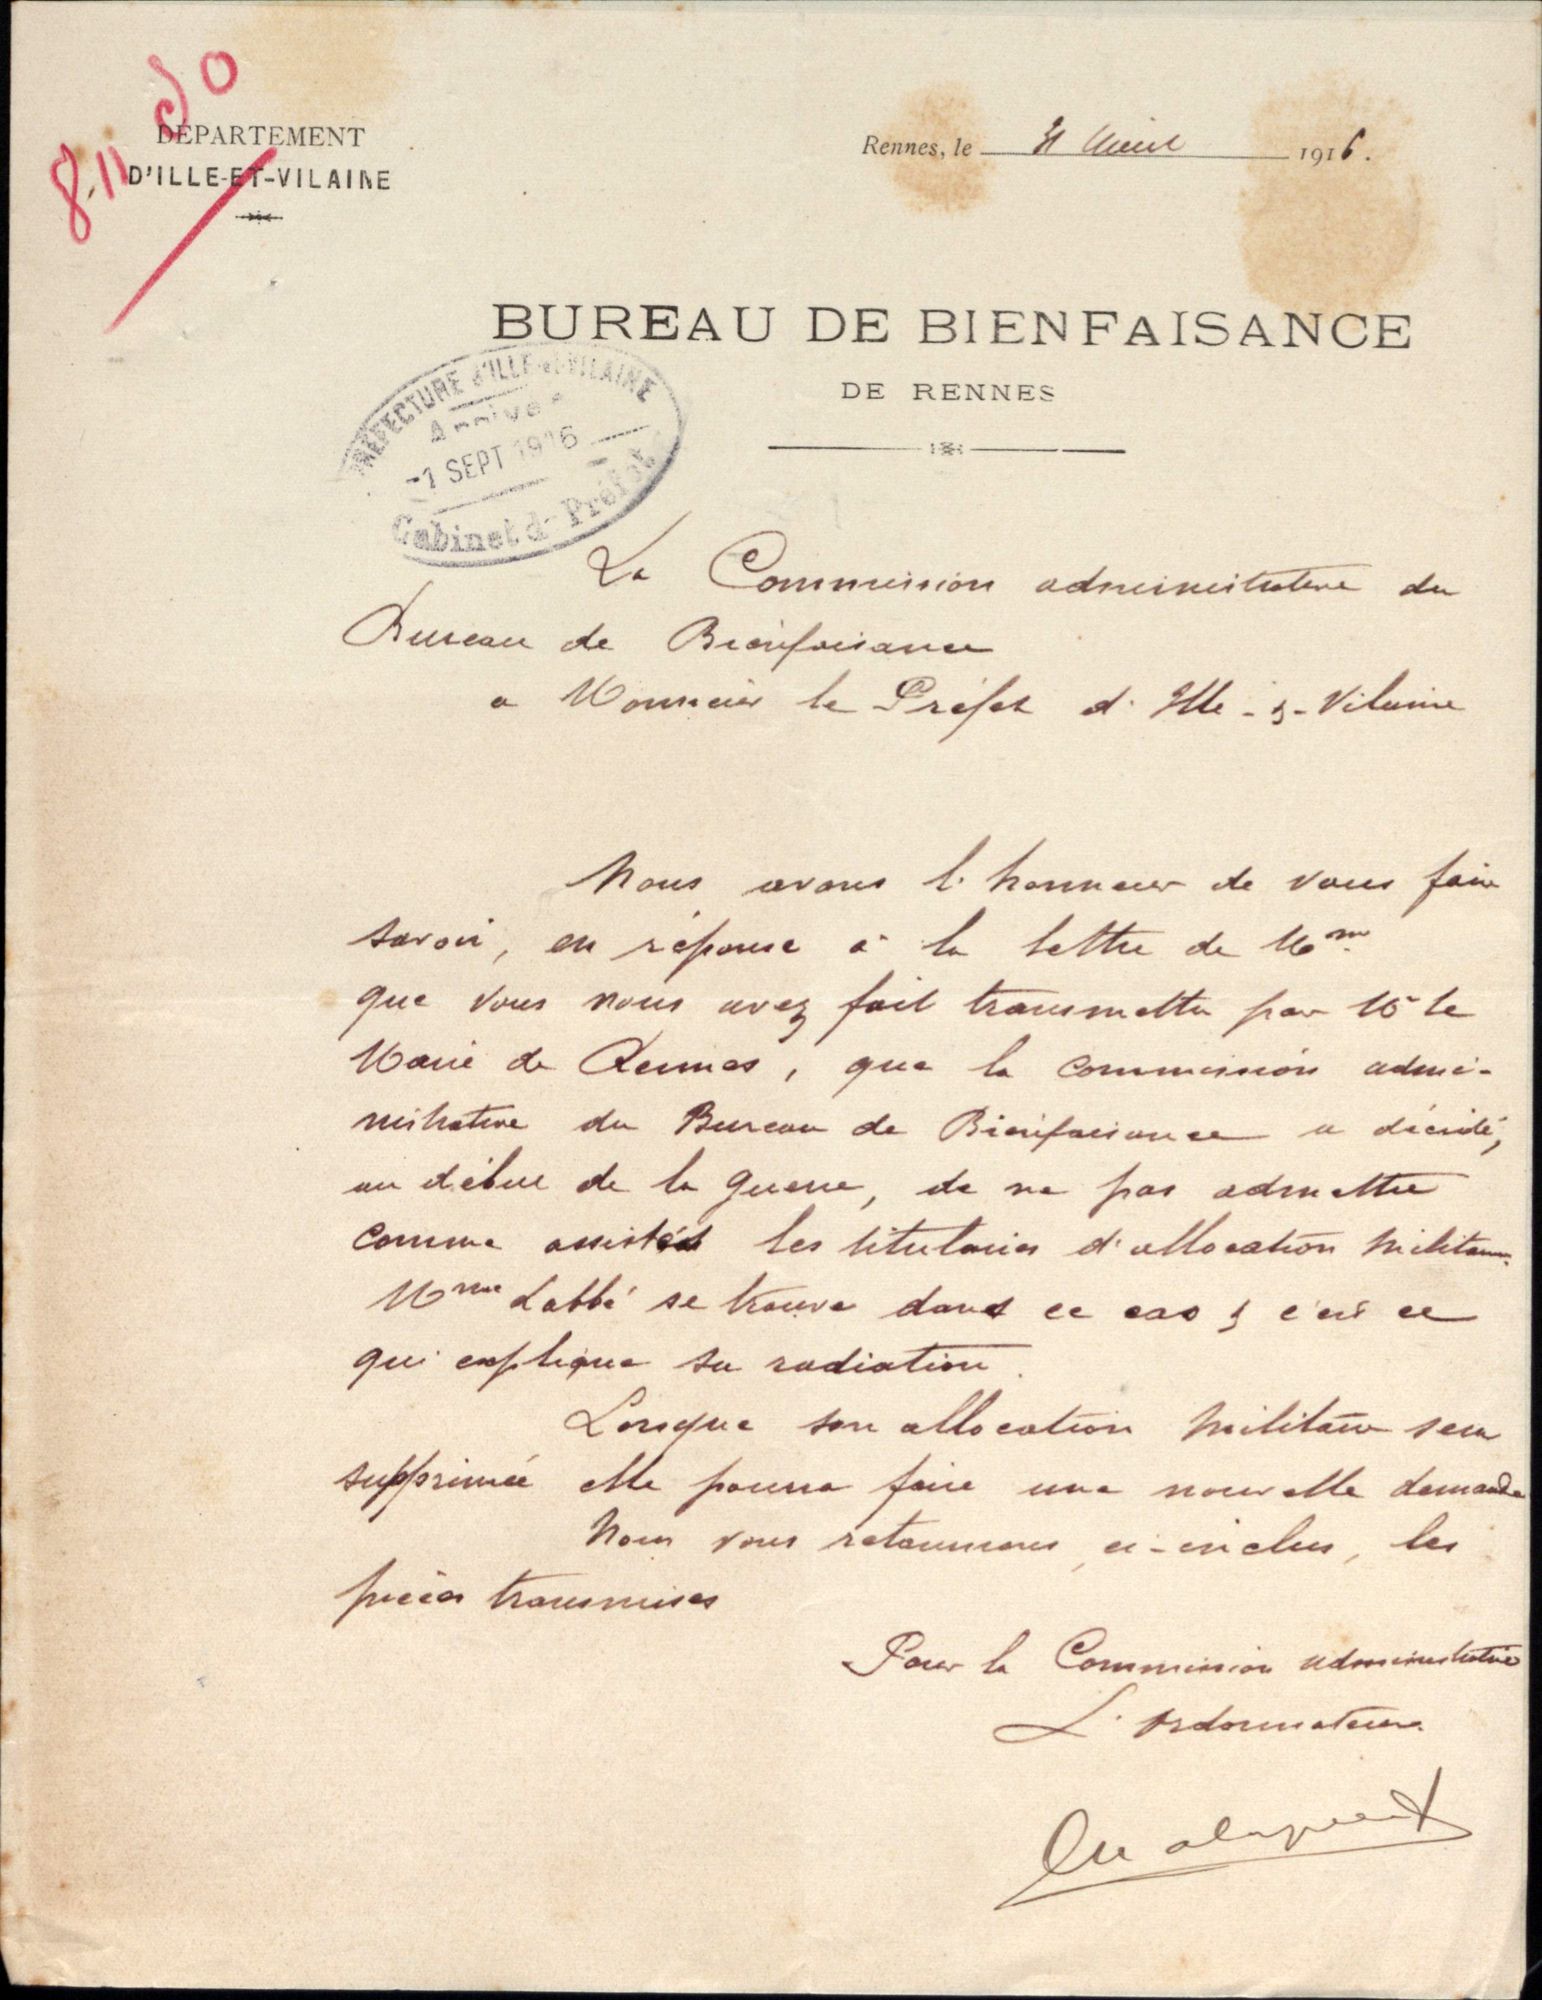 50
8.11
DÉPARTEMENT
D'ILLE-ET-VILAINE
Rennes, le 31 Août 1916.
BUREAU DE BIENFAISANCE
DE RENNES
PRÉFECTURE d'ILLE-et-VILAINE
Arrivée
-1 SEPT 1916
Cabinet du Préfet
La Commission administrative du
Bureau de Bienfaisance
a Monsieur le Préfet d'Ille-&-Vilaine
Nous avons l'honneur de vous faire
savoir, en réponse à la lettre de Mme
que vous nous avez fait transmettre par Mr le
Maire de Rennes, que la commission admi-
nistrative du Bureau de Bienfaisance a décidé,
au début de la guerre, de ne pas admettre
comme assistés les titulaires d'allocation militaire.
Mme Labbé se trouve dans ce cas & c'est ce
qui explique sa radiation.
Lorsque son allocation militaire sera
supprimée elle pourra faire une nouvelle demande
Nous vous retournons, ci-inclus, les
pièces transmises
Pour la Commission administrative
L'ordonnateur.